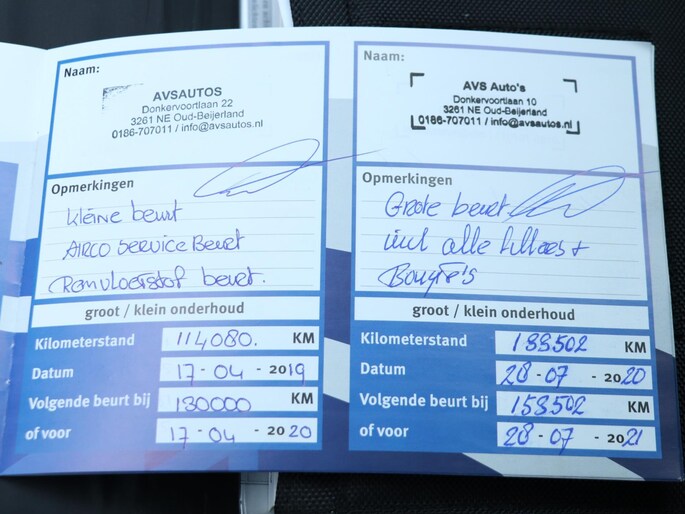 Naam:
AVSAUTOS
Donkervoortlaan 22
3261 NE Oud-Beijerland
0186-707011 / info@avsautos.nl
Opmerkingen
Kleine beurt
AIRCO SERVICE Beurt
Remvloeistof beurt.
groot / klein onderhoud
Kilometerstand 114080. KM
Datum 17-04-2019
Volgende beurt bij 130000 KM
of voor 17-04-2020
Naam:
AVS Auto's
Donkervoortlaan 10
3261 NE Oud-Beijerland
0186-707011 / info@avsautos.nl
Opmerkingen
Grote beurt
incl alle filters +
Bougie's
groot / klein onderhoud
Kilometerstand 133502 KM
Datum 28-07-2020
Volgende beurt bij 153502 KM
of voor 28-07-2021